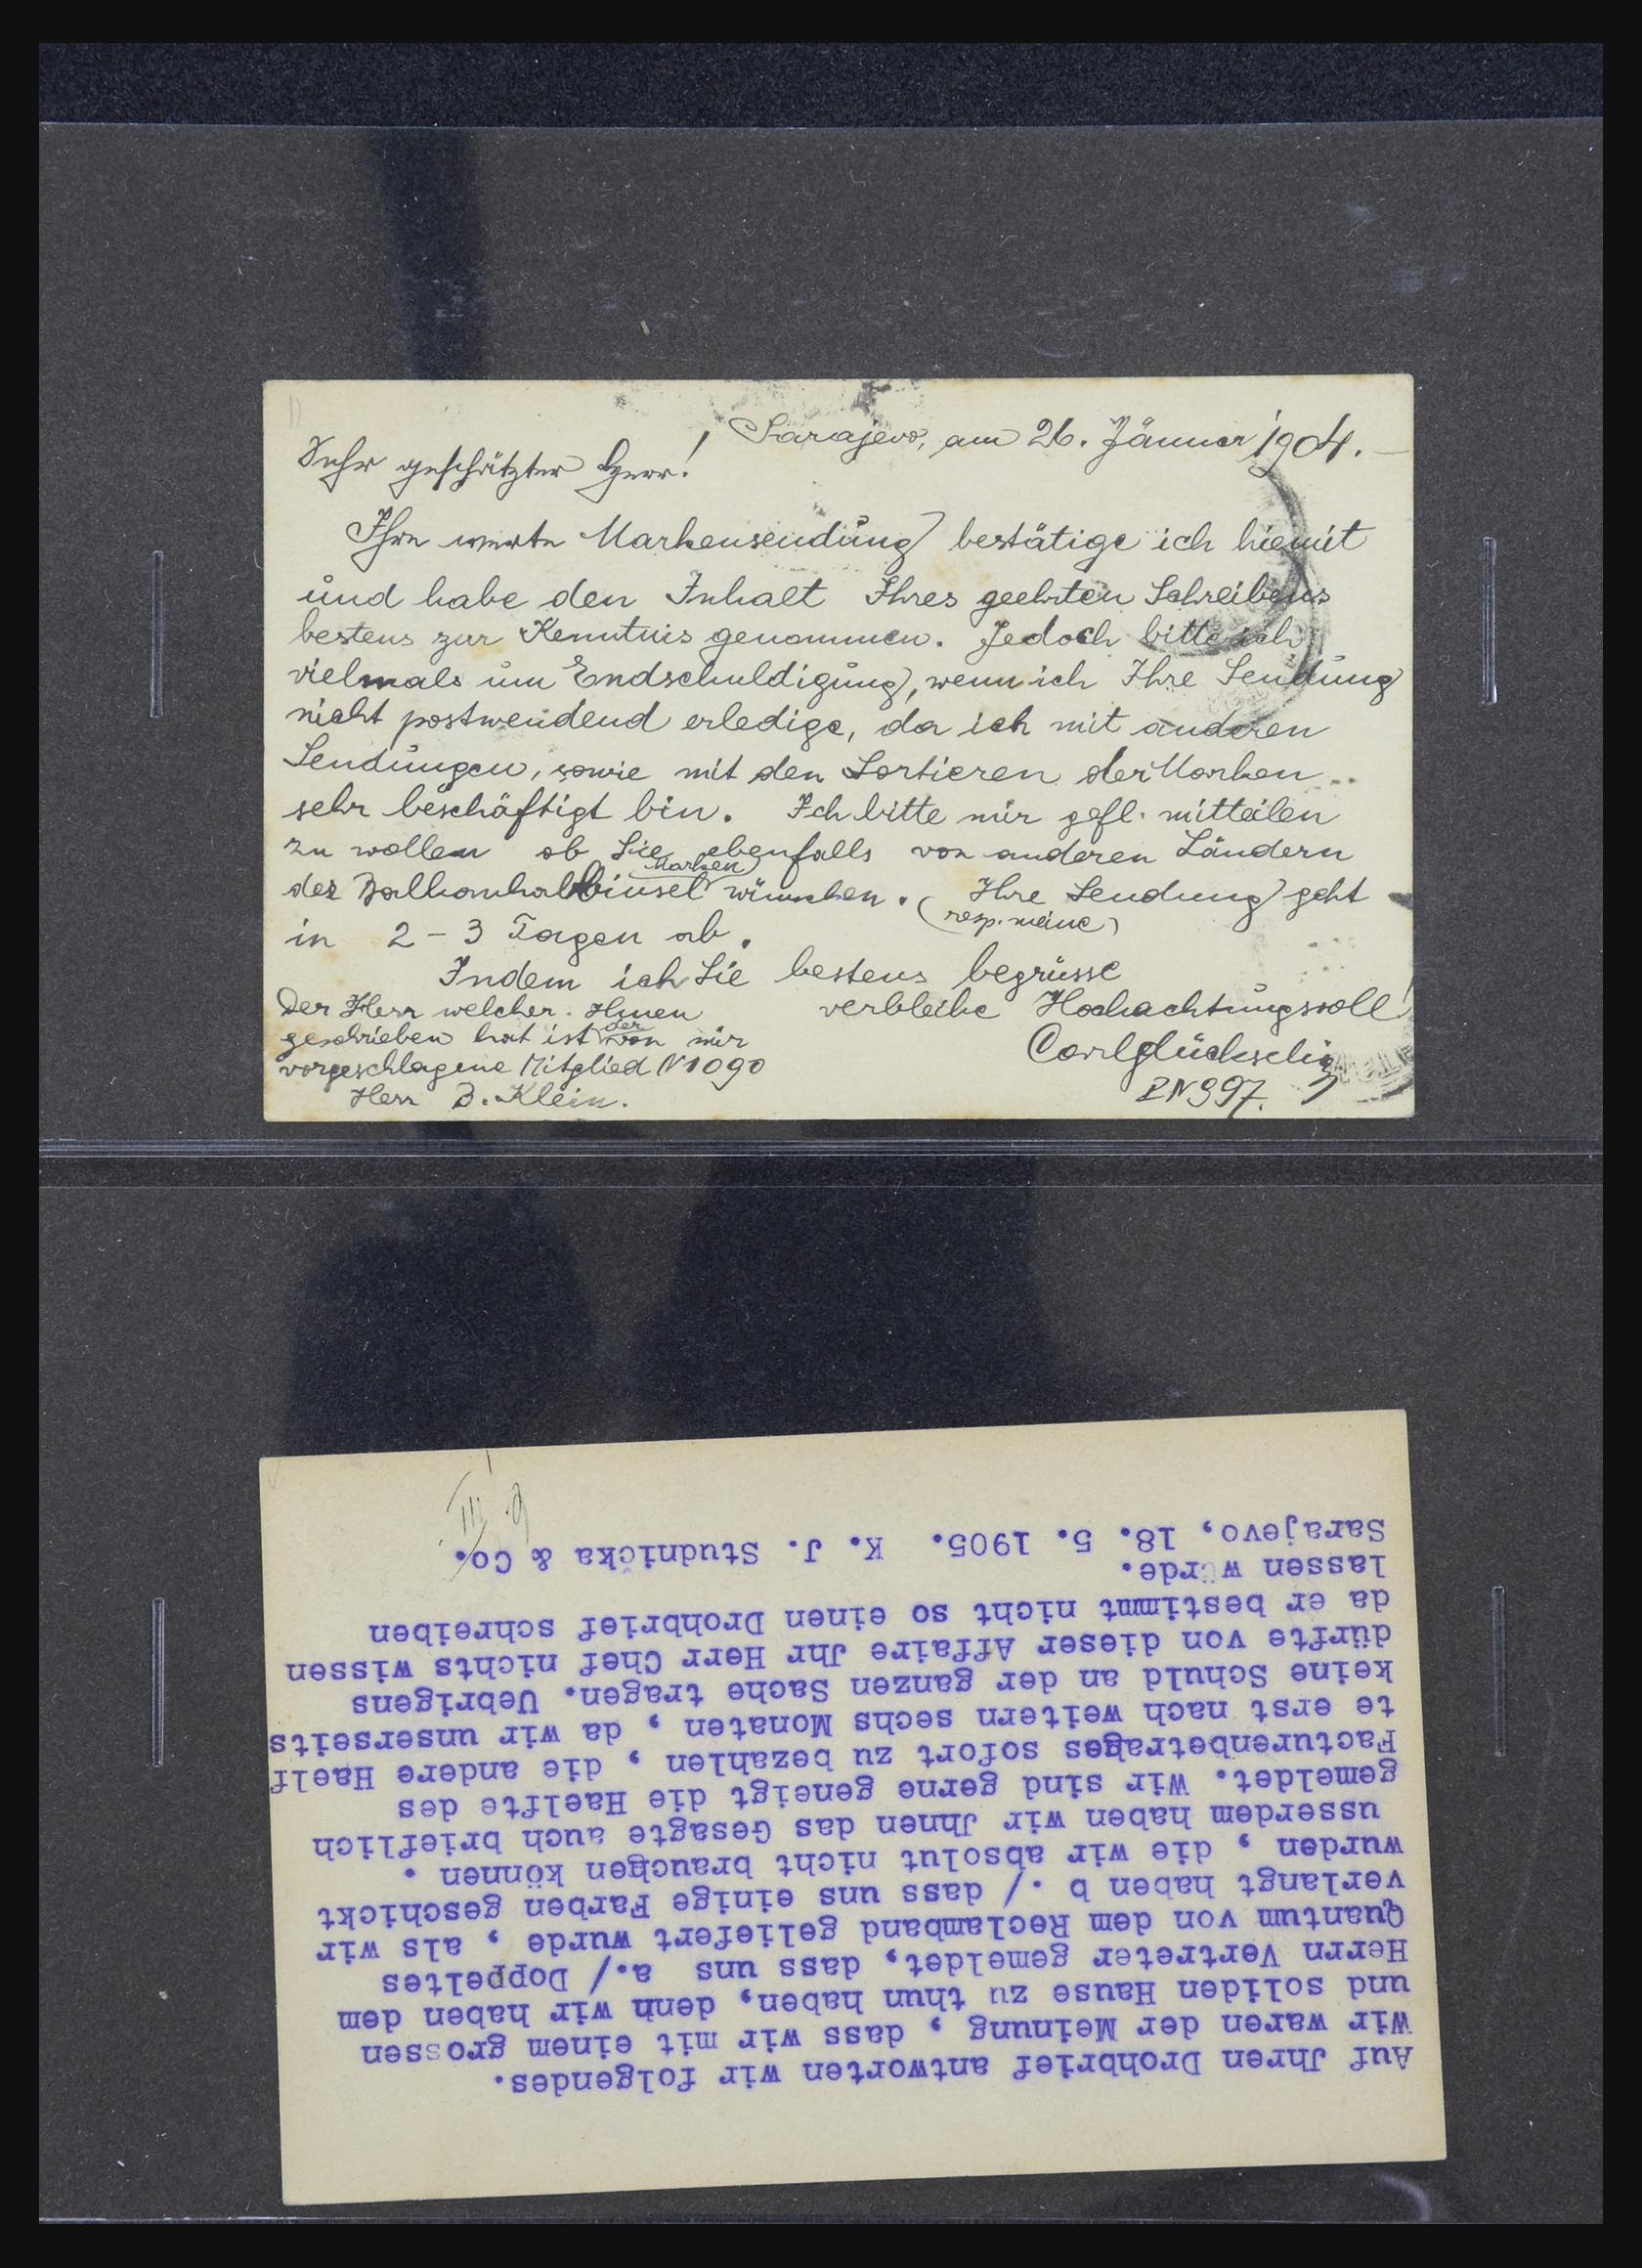 Sarajevo, am 26. Jänner 1904.
Sehr geschätzter Herr!
Ihre werte Markensendung bestätige ich hiemit
und habe den Inhalt Ihres geehrten Schreibens
bestens zur Kenntnis genommen. Jedoch bitte ich
vielmals um Endschuldigung, wenn ich Ihre Sendung
nicht postwendend erledige, da ich mit anderen
Sendungen, sowie mit den Sortieren der Marken
sehr beschäftigt bin. Ich bitte mir gefl. mitteilen
zu wollen ob Sie ebenfalls von anderen Ländern
der Balkanhalbinsel Marken wünschen. Ihre Sendung geht
(resp. meine)
in 2-3 Tagen ab.
Indem ich Sie bestens begrüsse
verbleibe Hochachtungsvoll!
Carl Glückselig
Der Herr welcher Ihnen
geschrieben hat ist der von mir
vorgeschlagene Mitglied N 1090
Herr B. Klein.
Auf Jhren Drohbrief antworten wir folgendes.
Wir waren der Meinung , dass wir mit einem grossen
und soliden Hause zu thun haben, denn wir haben dem
Herrn Vertreter gemeldet, dass uns a./ Doppeltes
Quantum von dem Reclamband geliefert wurde , als wir
verlangt haben b ./ dass uns einige Farben geschickt
wurden , die wir absolut nicht brauchen können .
usserdem haben wir Jhnen das Gesagte auch brieflich
gemeldet. Wir sind gerne geneigt die Haelfte des
Facturenbetrages sofort zu bezahlen , die andere Haelf
te erst nach weitern sechs Monaten , da wir unserseits
keine Schuld an der ganzen Sache tragen. Uebrigens
dürfte von dieser Affaire Jhr Herr Chef nichts wissen
da er bestimmt nicht so einen Drohbrief schreiben
lassen würde.
Sarajevo, 18. 5. 1905. K. J. Studnička & Co.